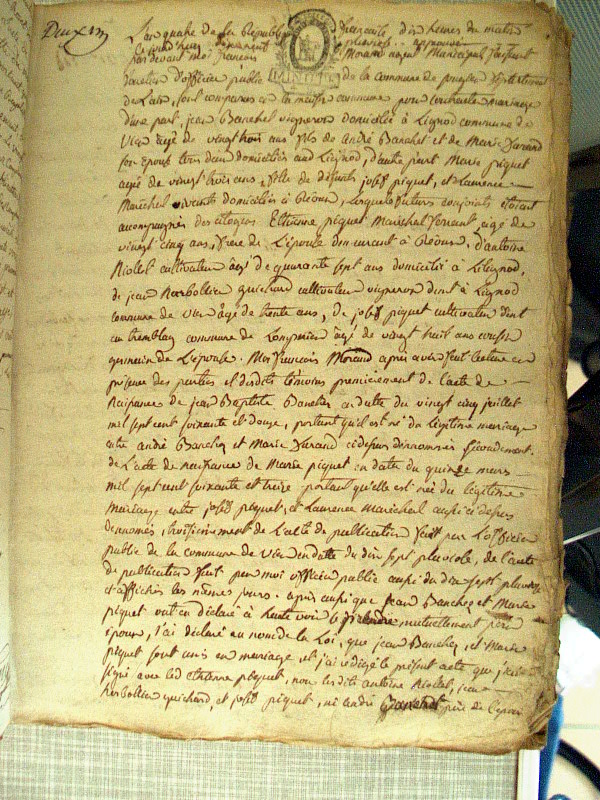 Deux m
L'an quatre de la République française dix heures du matin
pardevant moi François Morand agent Municipal faisant
fonction d'officier public de la commune de
de Lain, sont comparus en la maison commune pour contracter mariage
d'une part, jean Banchet vigneron domicilié à Lignod commune de
Vieu agé de vingt trois ans fils de andré Banchet et de Marie Durand
son épouse tous deux domiciliés au Lignod, d'autre part Marie piquet
agée de vingt trois ans, fille de défunts joseph piquet, et Laurence
Maréchal vivants domiciliés à, lesquels futurs conjoints étoient
accompagnés des citoyens Etienne piquet Maréchal ferrant agé de
vingt cinq ans, frère de L'épouse demeurant à, d'antoine
Riolet cultivateur âgé de quarante sept ans domicilié à Lilignod,
de jean quichard cultivateur vigneron demt à Lignod
commune de Vieu âgé de trente ans, de joseph piquet cultivateur demt
au tremblay commune de Lompnieu âgé de vingt huit ans cousin
germain de L'épouse. Moi François Morand après avoir fait lecture en
présence des parties et desdits témoins premièrement de l'acte de
Naissance de jean Baptiste Banchet en date du vingt cinq juillet
mil sept cent soixante et douze, portant qu'il est né du légitime mariage
entre andré Banchet et Marie Durand cidessus dénommés secondement
de L'acte de naissance de Marie piquet en date du quinze mars
mil sept cent soixante et treize portant qu'elle est née du légitime
mariage entre joseph piquet, et Laurence Maréchal aussi ci dessus
denommés, troisiemement de L'acte de publication fait par L'officier
public de la commune de Vieu en datte du dix sept pluviose, de l'acte
de publication fait par moi officier public aussi du dix sept pluviose
et affichés les mêmes jours. après aussi que jean Banchet et Marie
piquet ont eu déclaré à haute voix se prendre mutuellement pour
époux, j'ai déclaré au nom de la Loi, que jean Banchet, et Marie
piquet sont unis en mariage, et j'ai rédigé le présent acte que j'ai
signé avec led Etienne piquet, non lesdits antoine Riolet, jean
quichard, et joseph piquet, ni andré Banchet père de l'époux